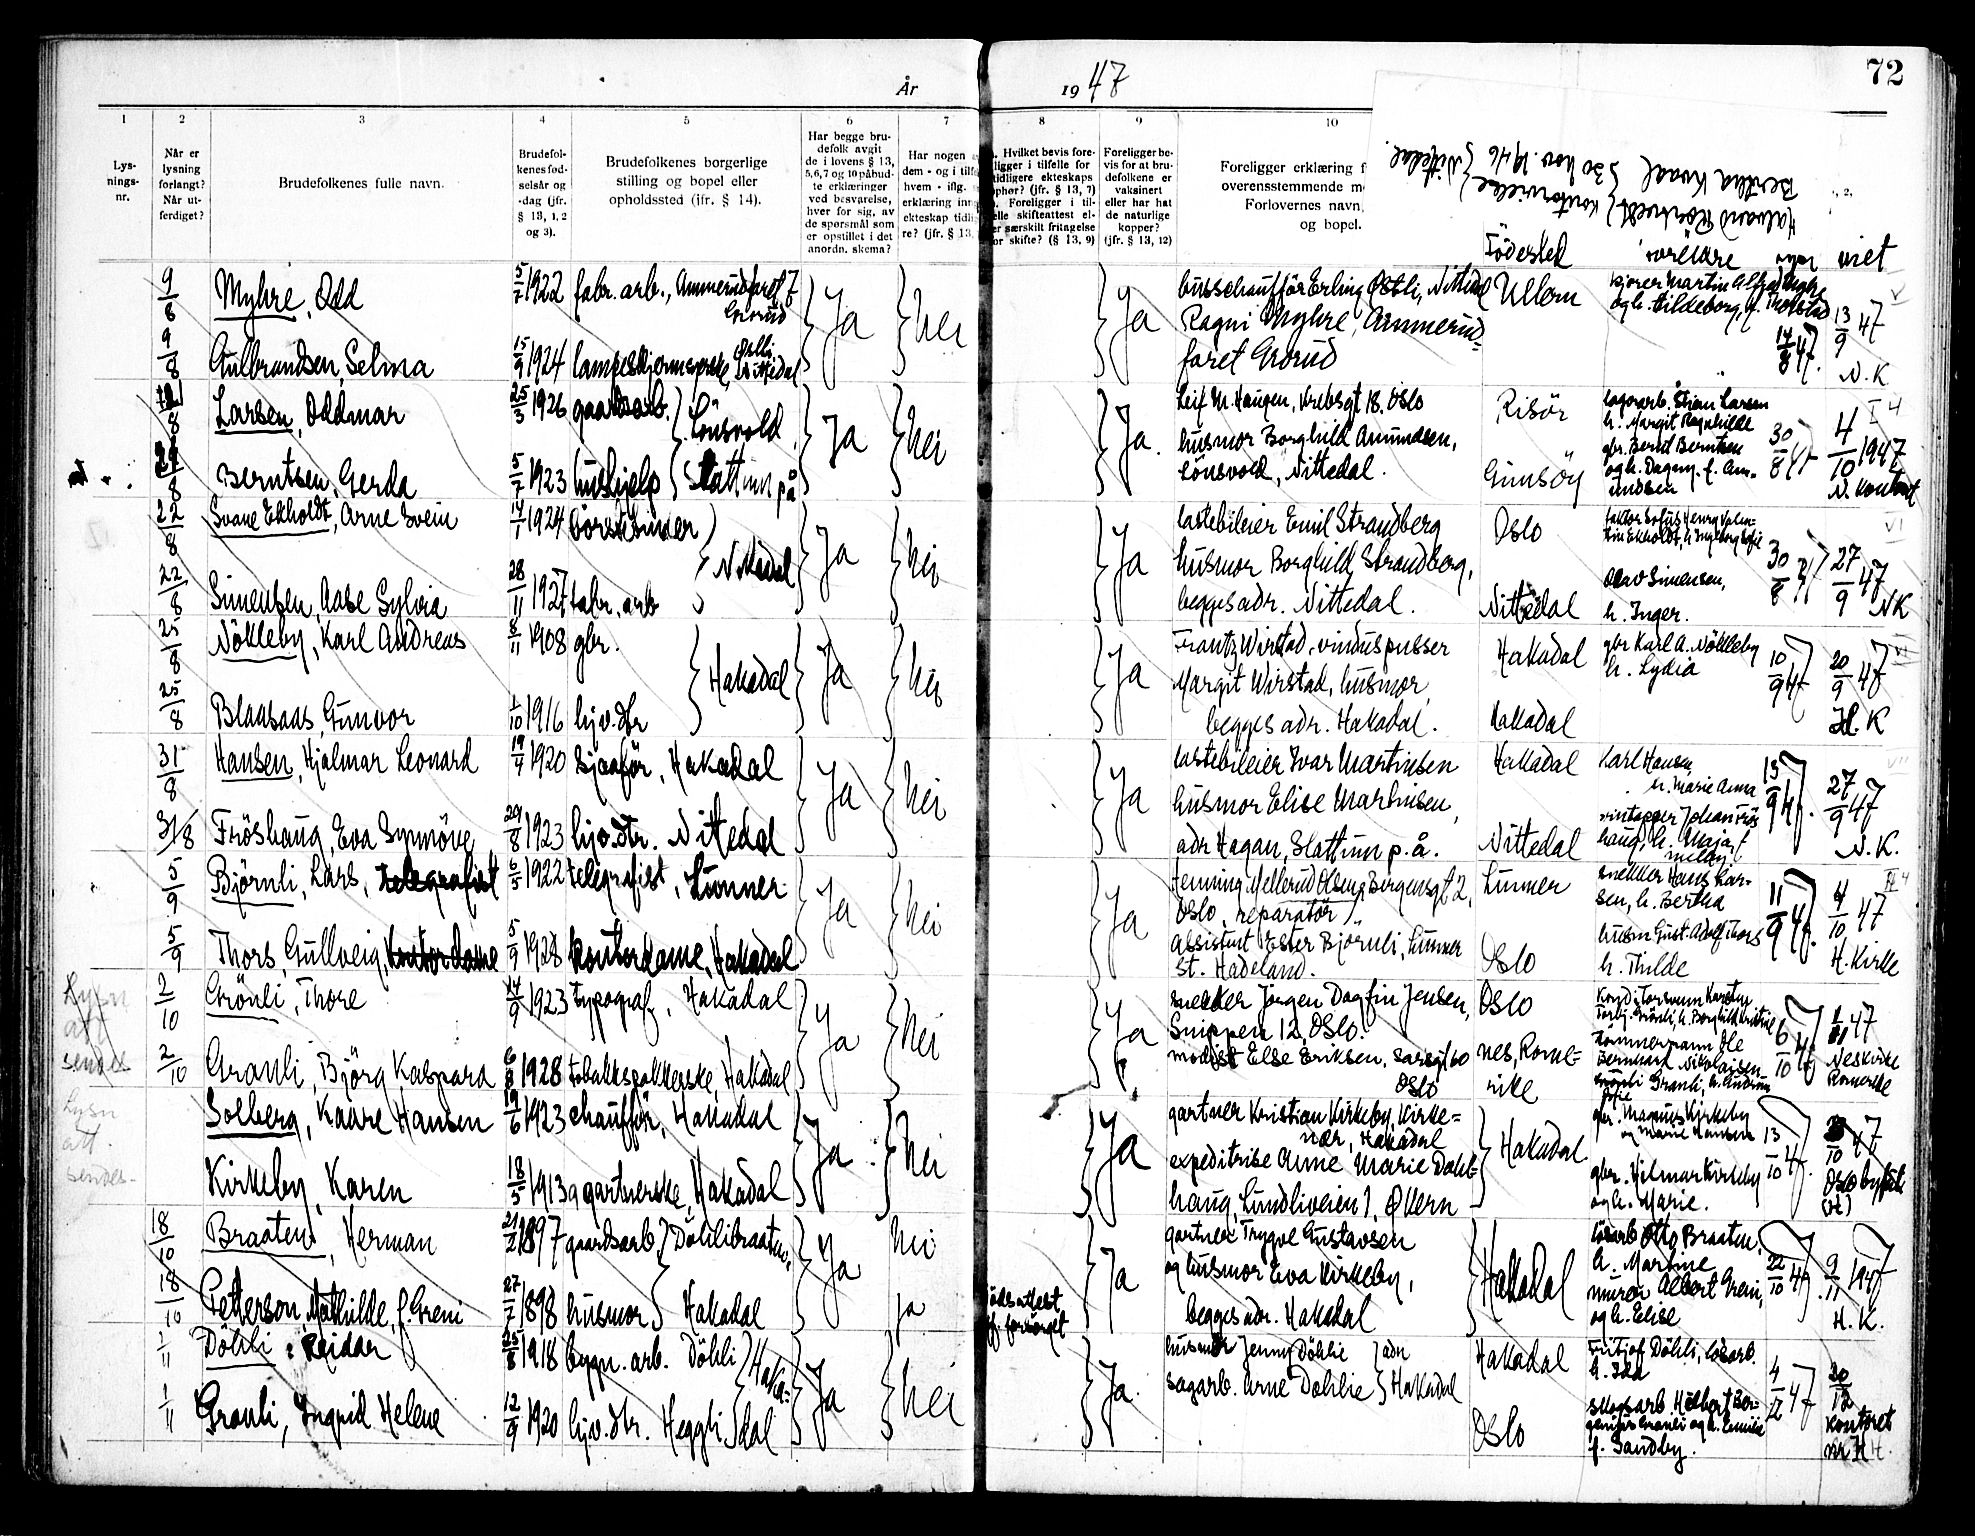 År 1947
72
1 2 3 4 5 6 7 8 9 10
Lys-
nings-
nr.
Når er
lysning
forlangt?
Når ut-
ferdiget?
Brudefolkenes fulle navn.
Brudefol-
kenes fød-
selsår og
-dag (jfr.
§ 13, 1, 2
og 3).
Brudefolkenes borgerlige
stilling og bopel eller
opholdssted (jfr. § 14).
Har begge bru-
defolk avgit
de i lovens § 13,
5,6,7 og 10 påbud-
te erklæringer
ved besvarelse,
hver for sig, av
de spørsmål som
er opstillet i det
anordn. skema?
Har nogen
dem - og i tilf
hvem - iflg.
erklæring inn
ekteskap tidl
re? (jfr. § 13,
Hvilket bevis fore-
ligger i tilfelle for
tidligere ekteskaps
ophør? (jfr. § 13, 7)
Foreligger i til-
elle skifteattest el-
er særskilt fritagelse
or skifte? (§ 13, 9)
Foreligger be-
vis for at bru-
defolkene er
vaksinert
eller har hat
de naturlige
kopper?
(jfr. § 13, 12)
Foreligger erklæring f
overensstemmende m
Forlovernes navn,
og bopel.
Halvard
Bertha Kvaal } 30 nov. 1946 } Nittedal.
Födested foreldre lyst viet
9/8 Myhre, Odd 5/7 1922 fabr. arb., Ammerudfaret 7
Grorud
Ja nei Ja
busschaufför Erling Østli, Nittedal
Ragni Myhre, Ammerud-
faret Grorud
Ullern
kjører Martin Alfred Myhre
og h. Hildeborg, f. Thorstad
14/8 47. 13/9 47
N. K
9/8 Gulbrandsen, Selma 15/9 1924 Østli
Nittedal
8 Larsen, Oddmar 25/3 1926 gaardsarb. } Lönsvold,
Ja nei Ja.
Leif M. Haugen, Krebsgt 18. Oslo
husmor Borghild Amundsen,
Lönsvold, Nittedal.
Risör
lagerarb. Stian Larsen
h. Margit Ragnhilde
30/8 47 4/10 1947
N. Kontoret
8 Berntsen, Gerda 5/7 1923 hushjelp } Slattum på
Gimsöy
gbr. Bernt Berntsen
og h. Dagny f. Am-
undsen
22/8 Svane Ekholdt, Arne Svein 1924 börstebinder
Nittedal Ja nei Ja
lastebileier Emil Strandberg
husmor Borghild Strandberg,
begges adr. Nittedal.
Oslo
30/8 47 27/9 47
NK
22/8 Simensen, Aase Sylvia 28/11 1927 fabr. arb
Nittedal
Olav Simensen,
h. Inger.
25/8 Nökleby, Karl Andreas 8/11 1908 gbr.
Hakadal Ja nei Ja
Frantz Wirstad, vinduspusser
Margit Wirstad, husmor,
begges adr. Hakadal.
Hakadal
gbr Karl A. Nökleby
h. Lydia
10/9 47 20/9 47
H. K
25/8 Blaasaas, Gunvor 1/10 1916 hjv. dtr
Hakadal
31/8 Hansen, Hjalmar Leonard 1920 sjaafør, Hakadal
Ja nei Ja
lastebileier Ivar Martinsen
husmor Elise Martinsen,
adr Hagan, Slattum p.å.
Hakadal
Karl Hansen,
h. Marie Anna
13/9 47. 27/9 47
N. K.
31/8 Fröshaug, Eva Synnöve 29/8 1923 hjv. dtr. Nittedal
Nittedal
5/9 Björnli, Lars, telegrafist 6/5 1922 telegrafist, Lunner
Ja nei Ja
Henning Mellerud Olsen, Bergensgt 2,
Oslo, reparatör
assistent Ester Björnli, Lunner
st. Hadeland.
Lunner
snekker Hans Lar-
sen, h. Bertha
11/9 47. 4/10 47
H. Kirke
5/9 Thors, Gullveig, Kontordame 5/9 1928 kontordame, Hakadal
Oslo
husm Gust. Adolf Thors
h. Thilde
Lysn
att
sendes
2/10 Grönli, Thore 14/9 1923 typograf, Hakadal
Ja nei Ja
snekker Jörgen Dagfin Jensen,
Snippen 12, Oslo.
modist Else Eriksen, Oslo
Oslo
6/10 47 47
Neskirke
Romerike
2/10 Granli, Björg Kaspara 6/8 1928 tobakkspakkerske, Hakadal
nes, Rome-
rike
Lysn
att.
sendes.
Solberg, Kaare Hansen 19/6 1923 chaufför, Hakadal
Ja nei Ja
gartner Kristian Kirkeby, Kirke-
nær, Hakadal
expeditrise Anne Marie Dahl-
haug, Lundliveien 1, Økern
Hakadal
gbr. Magnus Kirkeby
og Marie Hansen
13/10 47. 10 47
Oslo byfut
(H)
Kirkeby, Karen 18/5 1913 gartnerske, Hakadal
gbr. Hilmar Kirkeby
og h. Marie.
18/10 Braaten, Herman 21/2 1897 gaardsarb. } Döhlibraaten,
Ja nei Ja
gartner Trygve Gustavsen
og husmor Eva Kirkeby,
begges adr. Hakadal
Hakadal
lösarb Otto Braaten,
h. Martine
22/10 47 9/11 1947
H. K.
18/10 Petterson, Mathilde, f. Greni 27/7 1898 husmor } Hakadal
ja
murer Albert Greni,
og h. Elise
1/11 Döhli, Reidar 25/8 1918 bygn. arb. Döhli } Haka-
dal
Ja nei Ja.
husmor Jenny Döhlie } adr
sagarb. Arne Döhlie } Hakadal
Hakadal
Fritjof Döhli, lösarb.
h. Ida
47 30/12
kontoret
1/11 Granli, Ingrid Helene 12/9 1920 hjv. dtr. Heggli
Oslo
skogsarb. Helbert Ber-
f. Sandby.